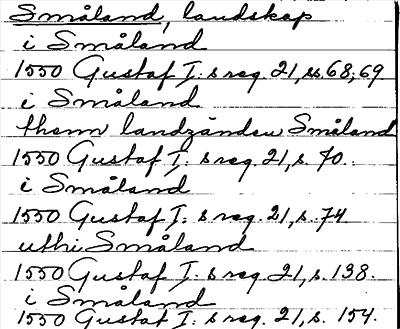 Småland, landskap
i Småland
1550 Gustaf I:s reg. 21, ss. 68, 69
i Småland
thenn landzänden Småland
1550 Gustaf I:s reg. 21, s. 70.
i Småland
1550 Gustaf I:s reg. 21, s. 74
uthi Småland
1550 Gustaf I:s reg. 21, s. 138.
i Småland
1550 Gustaf I:s reg. 21, s. 154.